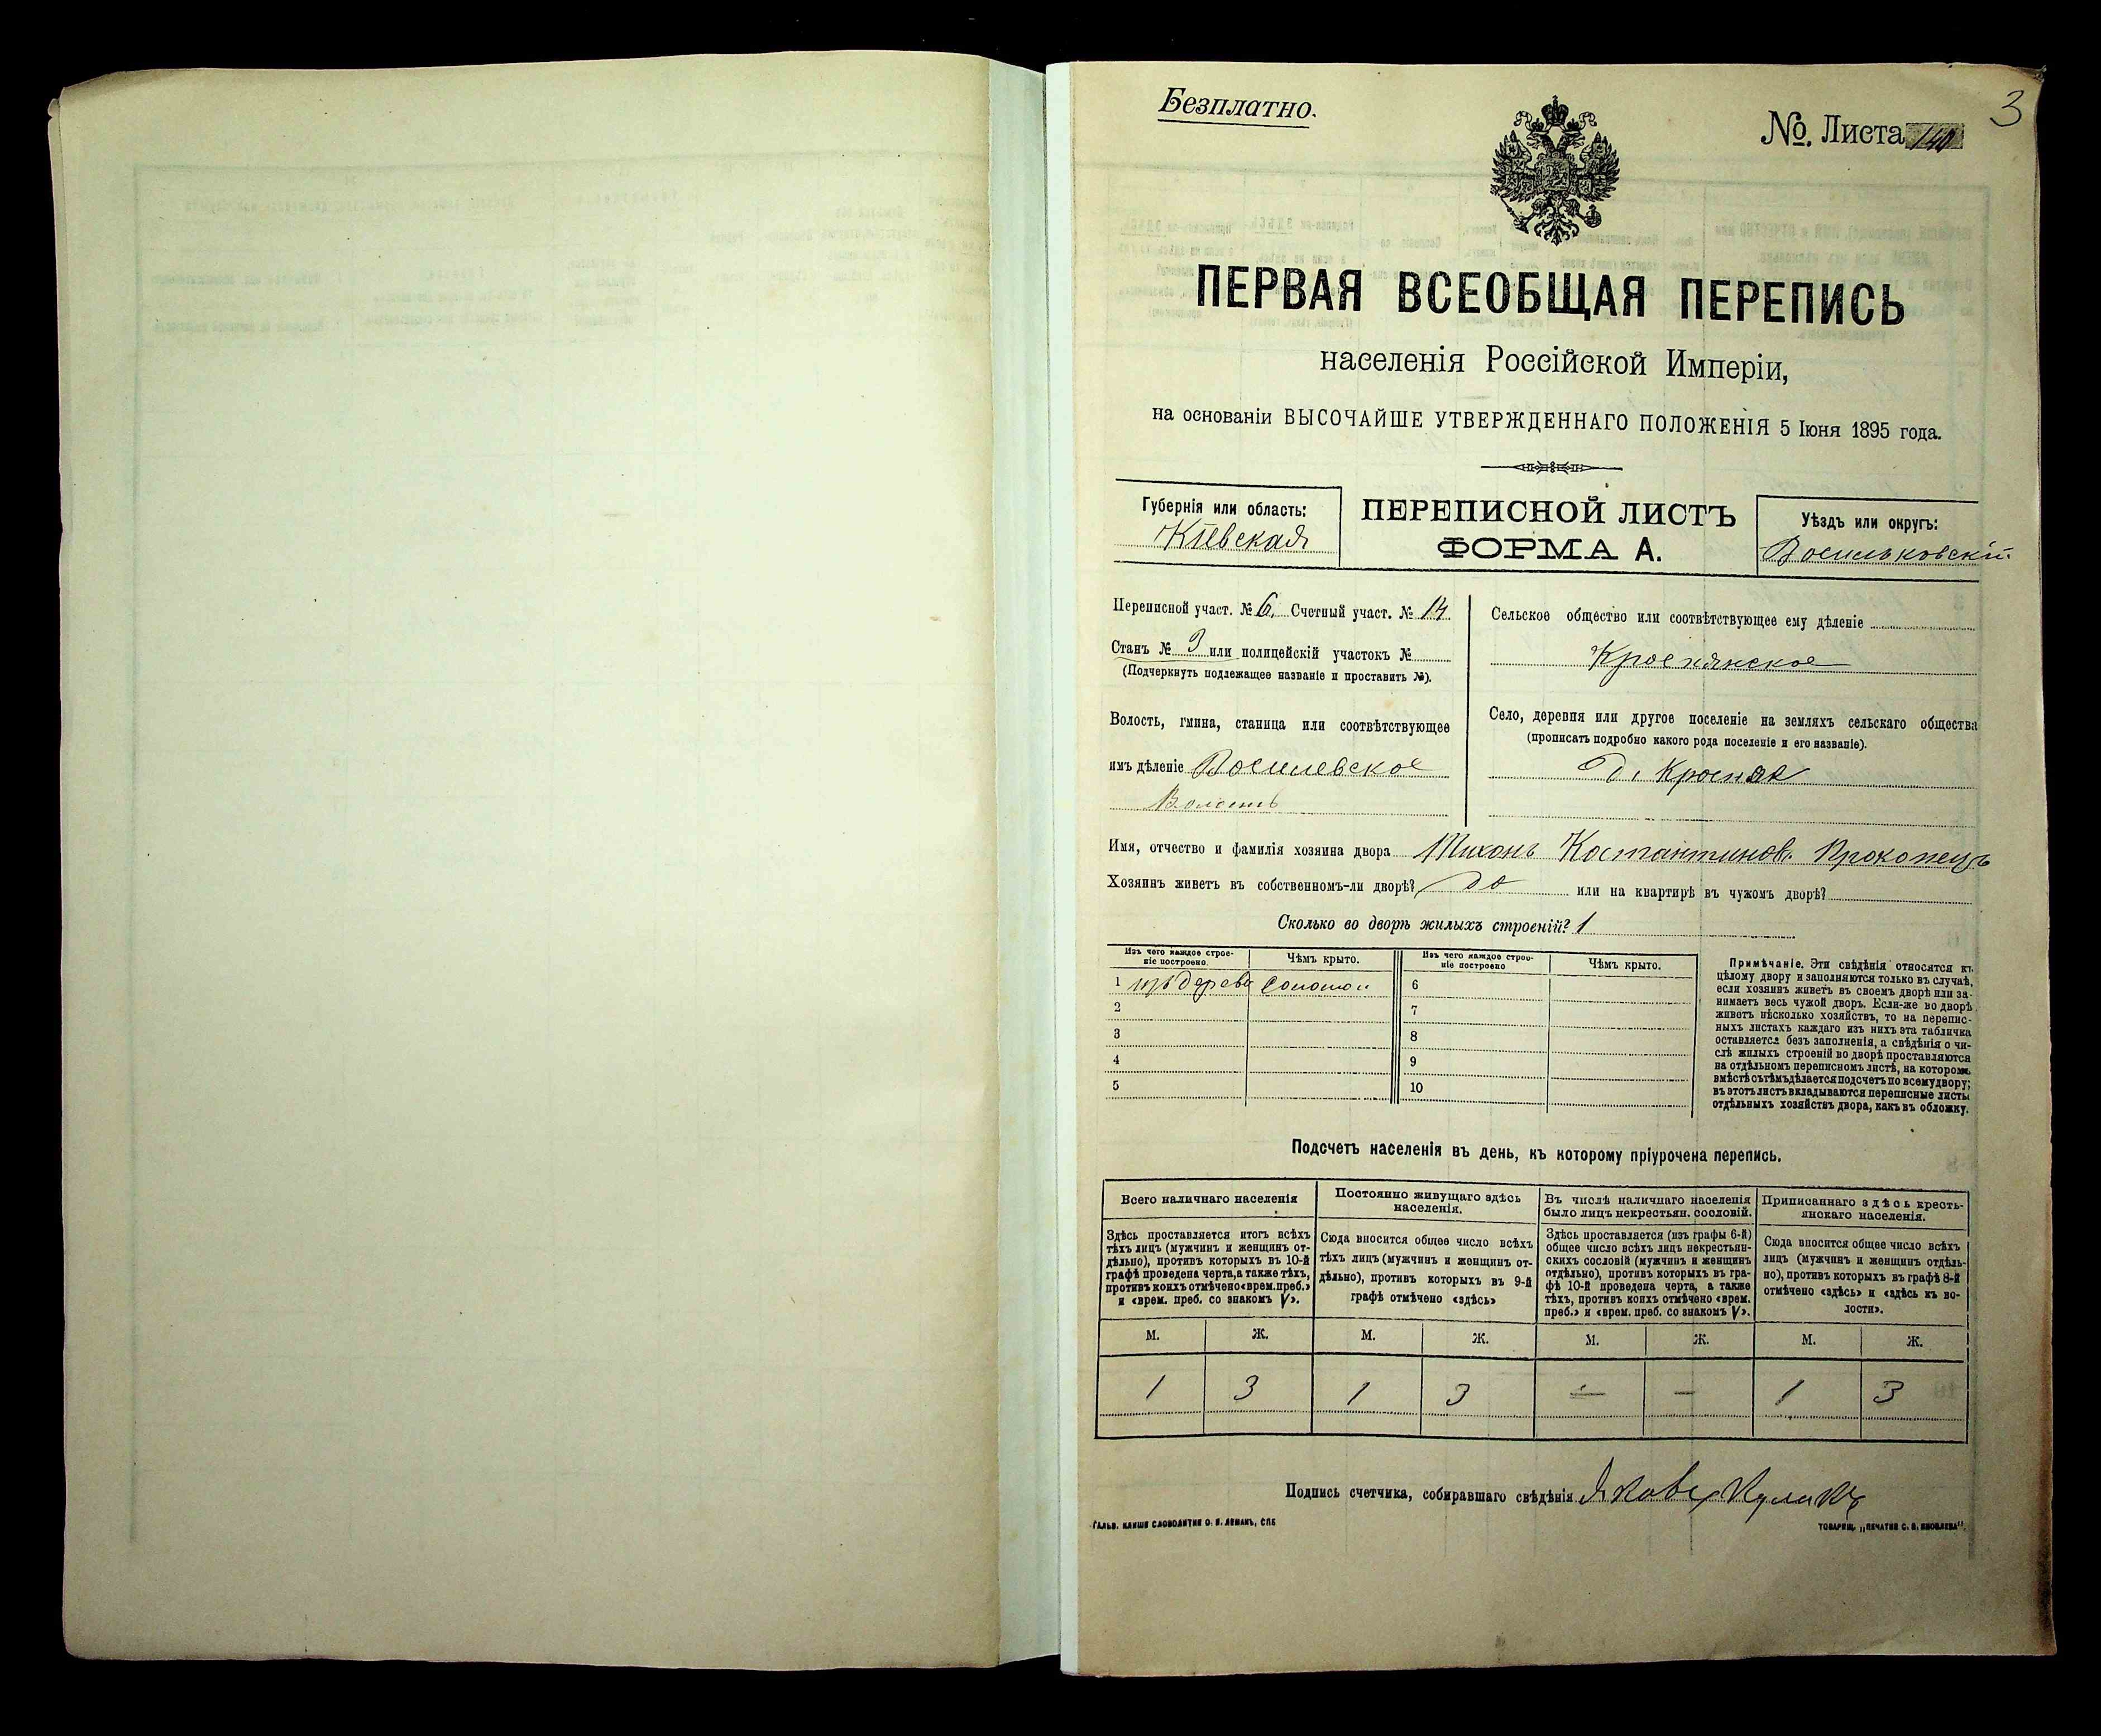 Безплатно.
№. Листа 140
3
ПЕРВАЯ ВСЕОБЩАЯ ПЕРЕПИСЬ
населенія Россійской Имперіи,
на основаніи ВЫСОЧАЙШЕ УТВЕРЖДЕННАГО ПОЛОЖЕНІЯ 5 Іюня 1895 года.
Губернія или область:
Кіевская
ПЕРЕПИСНОЙ ЛИСТЪ
ФОРМА А.
Уѣздъ или округъ:
Васильковскій
Переписной участ. № 6. Счетный участ. № 14
Станъ № 3 или полицейскій участокъ №
(Подчеркнуть подлежащее названіе и проставить №).
Волость, гмина, станица или соотвѣтствующее
имъ дѣленіе Василевское
Волость
Сельское общество или соотвѣтствующее ему дѣленіе
Краснянское
Село, деревня или другое поселеніе на земляхъ сельскаго общества
(прописать подробно какого рода поселеніе и его названіе).
д. Красная
Имя, отчество и фамилія хозяина двора Тихонъ Костантинов. Прокопецъ
Хозяинъ живетъ въ собственномъ-ли дворѣ? да или на квартирѣ въ чужомъ дворѣ?
Сколько во дворѣ жилыхъ строеній? 1
Изъ чего каждое строе-
ніе построено.
Чѣмъ крыто.
Изъ чего каждое строе-
ніе построено
Чѣмъ крыто.
1 изъ дерева соломой 6
2 7
3 8
4 9
5 10
Примѣчаніе. Эти свѣдѣнія относятся къ
цѣлому двору и заполняются только въ случаѣ,
если хозяинъ живетъ въ своемъ дворѣ или за-
нимаетъ весь чужой дворъ. Если-же во дворѣ
живетъ нѣсколько хозяйствъ, то на перепис-
ныхъ листахъ каждаго изъ нихъ эта табличка
оставляется безъ заполненія, а свѣдѣнія о чи-
слѣ жилыхъ строеній во дворѣ проставляются
на отдѣльномъ переписномъ листѣ, на которомъ
вмѣстѣ съ тѣмъ дѣлается подсчетъ по всему двору;
въ этотъ листъ вкладываются переписные листы
отдѣльныхъ хозяйствъ двора, какъ въ обложку.
Подсчетъ населенія въ день, къ которому пріурочена перепись.
Всего наличнаго населенія
Здѣсь проставляется итогъ всѣхъ
тѣхъ лицъ (мужчинъ и женщинъ от-
дѣльно), противъ которыхъ въ 10-й
графѣ проведена черта, а также тѣхъ,
противъ коихъ отмѣчено «врем. преб.»
и «врем. преб. со знакомъ V».
Постоянно живущаго здѣсь
населенія.
Сюда вносится общее число всѣхъ
тѣхъ лицъ (мужчинъ и женщинъ от-
дѣльно), противъ которыхъ въ 9-й
графѣ отмѣчено «здѣсь»
Въ числѣ наличнаго населенія
было лицъ некрестьян. сословій.
Здѣсь проставляется (изъ графы 6-й)
общее число всѣхъ лицъ некрестьян-
скихъ сословій (мужчинъ и женщинъ
отдѣльно), противъ которыхъ въ гра-
фѣ 10-й проведена черта, а также
тѣхъ, противъ коихъ отмѣчено «врем.
преб.» и «врем. преб. со знакомъ V».
Приписаннаго здѣсь кресть-
янскаго населенія.
Сюда вносится общее число всѣхъ
лицъ (мужчинъ и женщинъ отдѣль-
но), противъ которыхъ въ графѣ 8-й
отмѣчено «здѣсь» и «здѣсь къ во-
лости».
М. Ж. М. Ж. М. Ж. М. Ж.
1 3 1 3 — — 1 3
Подпись счетчика, собиравшаго свѣдѣнія Яковъ Кулакъ
ГАЛЬВ. КЛИШЕ СЛОВОЛИТНИ О. И. ЛЕМАНЪ, СПБ
ТОВАРИЩ. „ПЕЧАТНЯ С. П. ЯКОВЛЕВА".